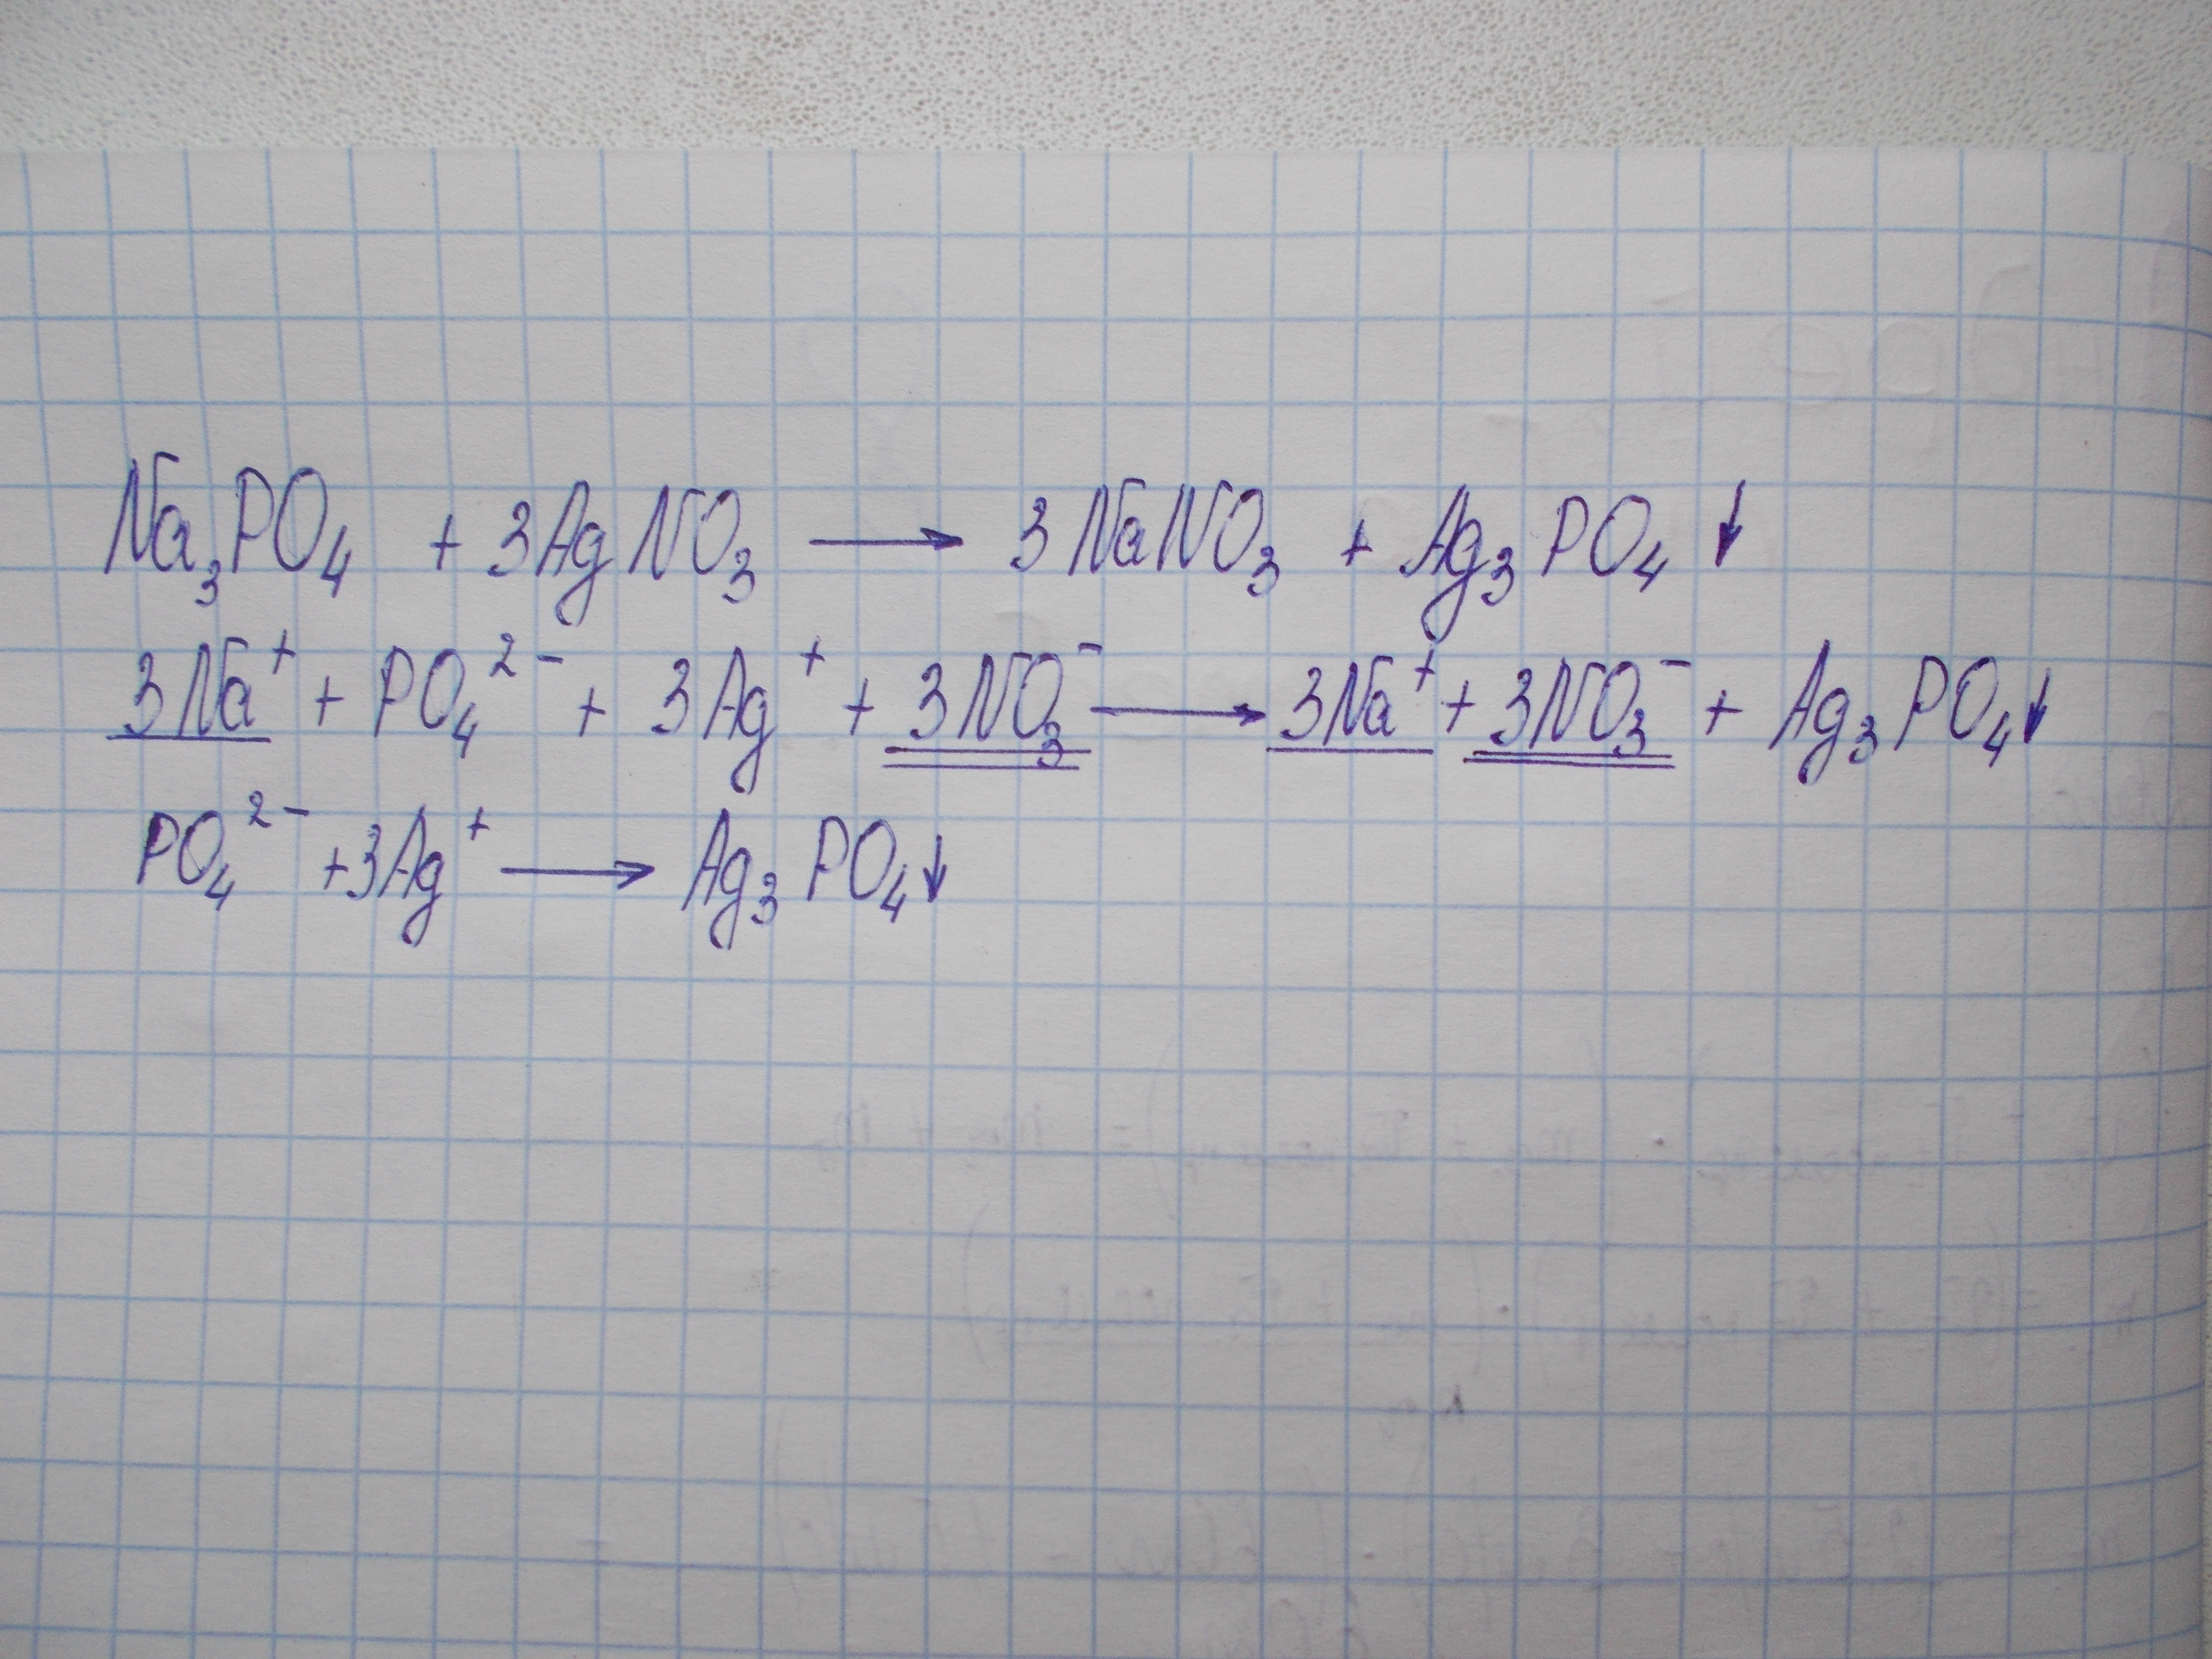 Na₃PO₄ + 3AgNO₃ ⟶ 3NaNO₃ + Ag₃PO₄↓
3Na⁺ + PO₄²⁻ + 3Ag⁺ + 3NO₃⁻ ⟶ 3Na⁺ + 3NO₃⁻ + Ag₃PO₄↓
PO₄²⁻ + 3Ag⁺ ⟶ Ag₃PO₄↓